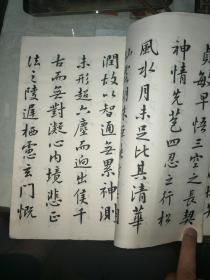 貞敏早悟三空之長契
神情先苞四忍之行松
風水月未足比其清華
潤故以智通無累神測
未形超六塵而迥出隻千
古而無對凝心內境悲正
法之陵遲栖慮玄門慨